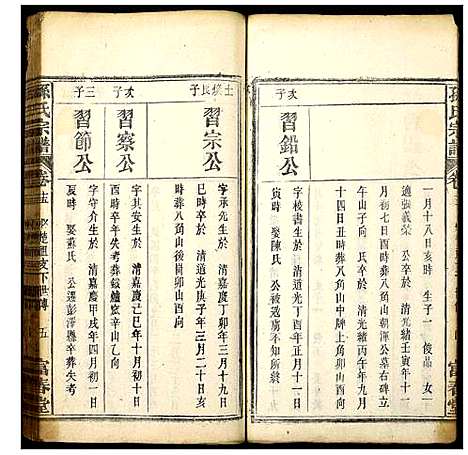 一月十八日亥時 生子一 俊品 女一
適張義榮 公卒於 清光緒壬寅年十一
月初七日酉時葬八角山朝渾公墓右碑立
午山子向 氏卒於 清光緒丙午年九月
十四日午時葬八角山中牌上角卯山酉向
次子
習鉛公
字 生於 清道光丁酉年正月十一日
寅時 娶陳氏 公被逃虜不知何所
士煐長子
習宗公
字承先生於 清嘉慶丁卯年三月十九日
巳時卒於 清道光庚子年三月二十日亥
時葬八角山後樹卯山酉向
次子
習察公
字致和生於 清嘉慶己巳年十月初十日
酉時卒年失考葬鈸爐窊辛山乙向
三子
習節公
字守介生於 清嘉慶甲戌年四月初一日
夏時 娶蘇氏 公遷彭澤縣卒葬失考
孫氏宗譜
卷
下世傳
五
富春堂
孫氏宗譜
卷
富春堂